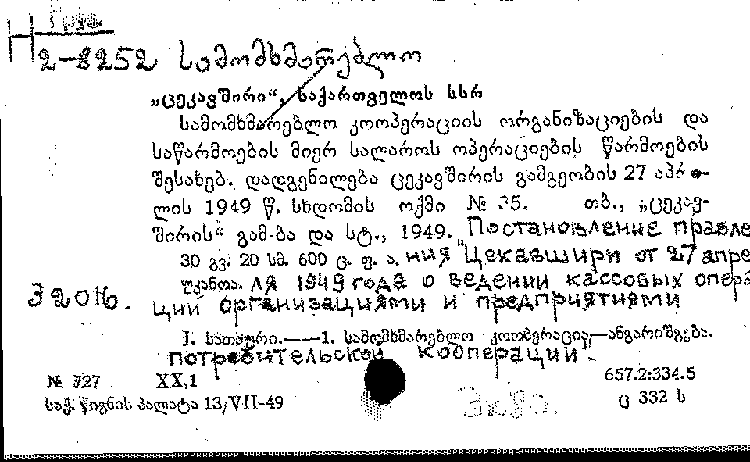 Груз.
Н
2-8252 სამომხმარებლო
„ცეკავშირი“, საქართველოს სსრ
სამომხმარებლო კოოპერაციის ორგანიზაციების და
საწარმოების მიერ სალაროს ოპერაციების წარმოების
შესახებ. დადგენილება ცეკავშირის გამგეობის 27 აპრი-
ლის 1949 წ. სხდომის ოქმი № 35. თბ., „ცეკავ-
შირის“ გამ-ბა და სტ., 1949. Постановление правле
30 გვ. 20 სმ. 600 ც. ფ. ა. ния "Цекавшири от 27 апре
უკანთა. ля 1949 года о ведении кассовых опера
32016. ций организациями и предприятиями
I. სათაური.——1. სამომხმარებლო კოოპერაცია—ანგარიშგება.
потребительской кооперации.
№ 327 XX,1 657.2:334.5
საქ. წიგნის პალატა 13/VII-49 ც 332 ს